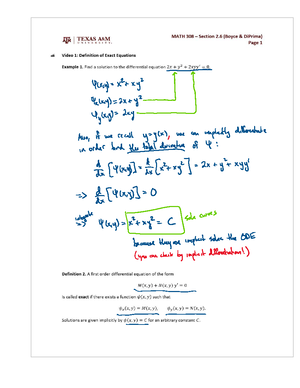 TEXAS A&M
UNIVERSITY
MATH 308 – Section 2.6 (Boyce & DiPrima)
Page 1
Video 1: Definition of Exact Equations
Example 1. Find a solution to the differential equation 2x + y² + 2xyy' = 0.
ψ(x,y) = x² + xy²
ψₓ(x,y) = 2x + y²
ψᵧ(x,y) = 2xy
if we recall y = y(x), we can implicitly differentiate
in order find the total derivative of ψ:
d/dx [ψ(x,y)] = d/dx [x² + xy²] = 2x + y² + xyy'
⇒ d/dx [ψ(x,y)] = 0
integrate ⇒ ψ(x,y) = x² + xy² = C
curves
because they are implicit solve the ODE
(you can check by implicit differentiation!)
Definition 2. A first order differential equation of the form
M(x, y) + N(x, y) y' = 0
is called exact if there exists a function ψ(x, y) such that
ψₓ(x, y) = M(x, y), ψᵧ(x, y) = N(x, y).
Solutions are given implicitly by ψ(x, y) = C for an arbitrary constant C.